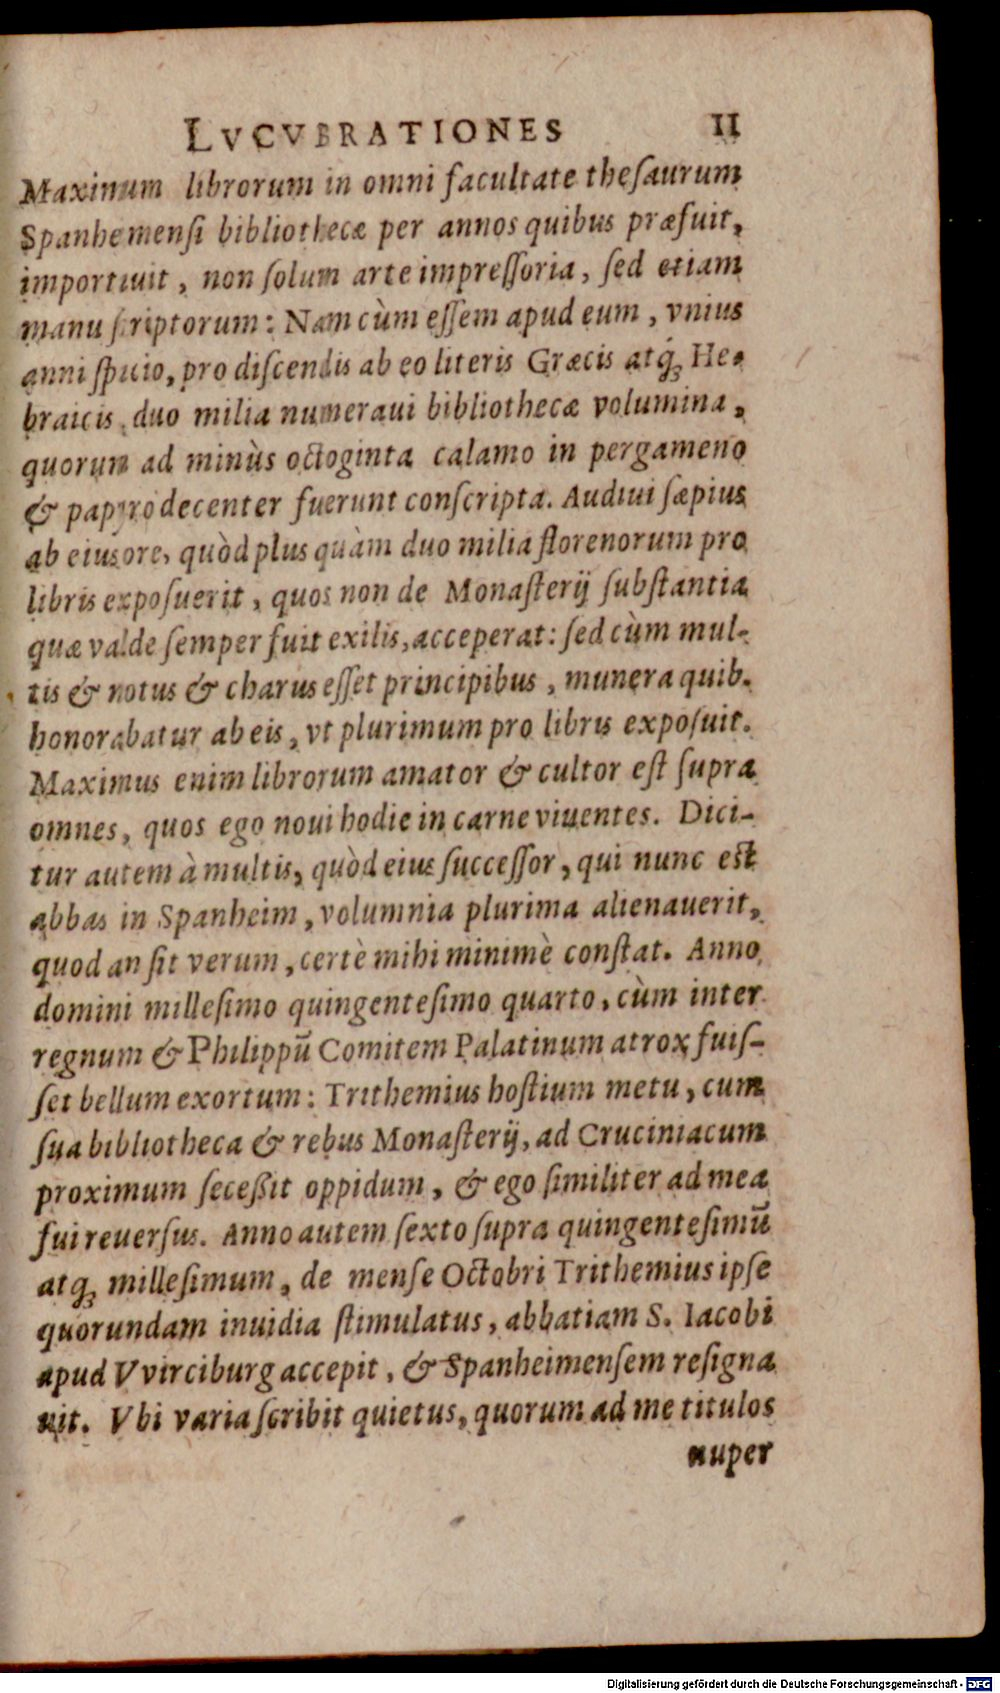 LVCVBRATIONES 11
Maximum librorum in omni facultate theſaurum
Spanhemenſi bibliothecæ per annos quibus præfuit,
importuit, non ſolum arte impreſſoria, ſed etiam
manu ſcriptorum: Nam cùm eſſem apud eum, vnius
anni ſpacio, pro diſcendis ab eo literis Græcis atq́; He-
braicis, duo milia numeraui bibliothecæ volumina,
quorum ad minùs octoginta calamo in pergameno
& papyro decenter fuerunt conſcripta. Audiui ſæpius
ab eius ore, quòd plus quàm duo milia florenorum pro
libris expoſuerit, quos non de Monaſterij ſubſtantia
quæ valde ſemper fuit exilis, acceperat: ſed cùm mul-
tis & notus & charus eſſet principibus, munera quib.
honorabatur ab eis, vt plurimum pro libris expoſuit.
Maximus enim librorum amator & cultor eſt ſupra
omnes, quos ego noui hodie in carne viuentes. Dici-
tur autem à multis, quòd eius ſucceſſor, qui nunc eſt
abbas in Spanheim, volumnia plurima alienauerit,
quod an ſit verum, certè mihi minimè conſtat. Anno
domini milleſimo quingenteſimo quarto, cùm inter
regnum & Philippũ Comitem Palatinum atrox fuiſ-
ſet bellum exortum: Trithemius hoſtium metu, cum
ſua bibliotheca & rebus Monaſterij, ad Cruciniacum
proximum ſeceßit oppidum, & ego ſimiliter ad mea
fui reuerſus. Anno autem ſexto ſupra quingenteſimũ
atq; milleſimum, de menſe Octobri Trithemius ipſe
quorundam inuidia ſtimulatus, abbatiam S. Iacobi
apud Vvirciburg accepit, & Spanheimenſem reſigna
uit. Vbi varia ſcribit quietus, quorum ad me titulos
nuper
Digitalisierung gefördert durch die Deutsche Forschungsgemeinschaft - DFG